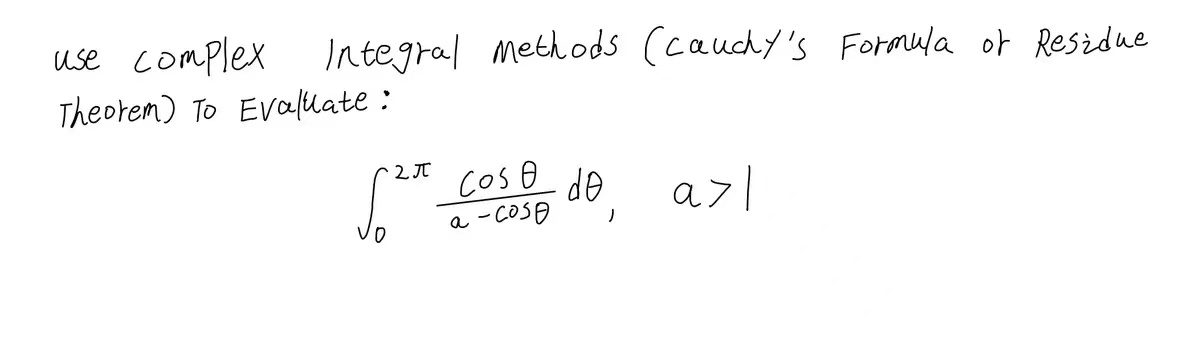 use complex Integral methods (cauchy's Formula or Residue
Theorem) To Evaluate :
∫₀^{2π} cosθ / (a - cosθ) dθ, a > 1